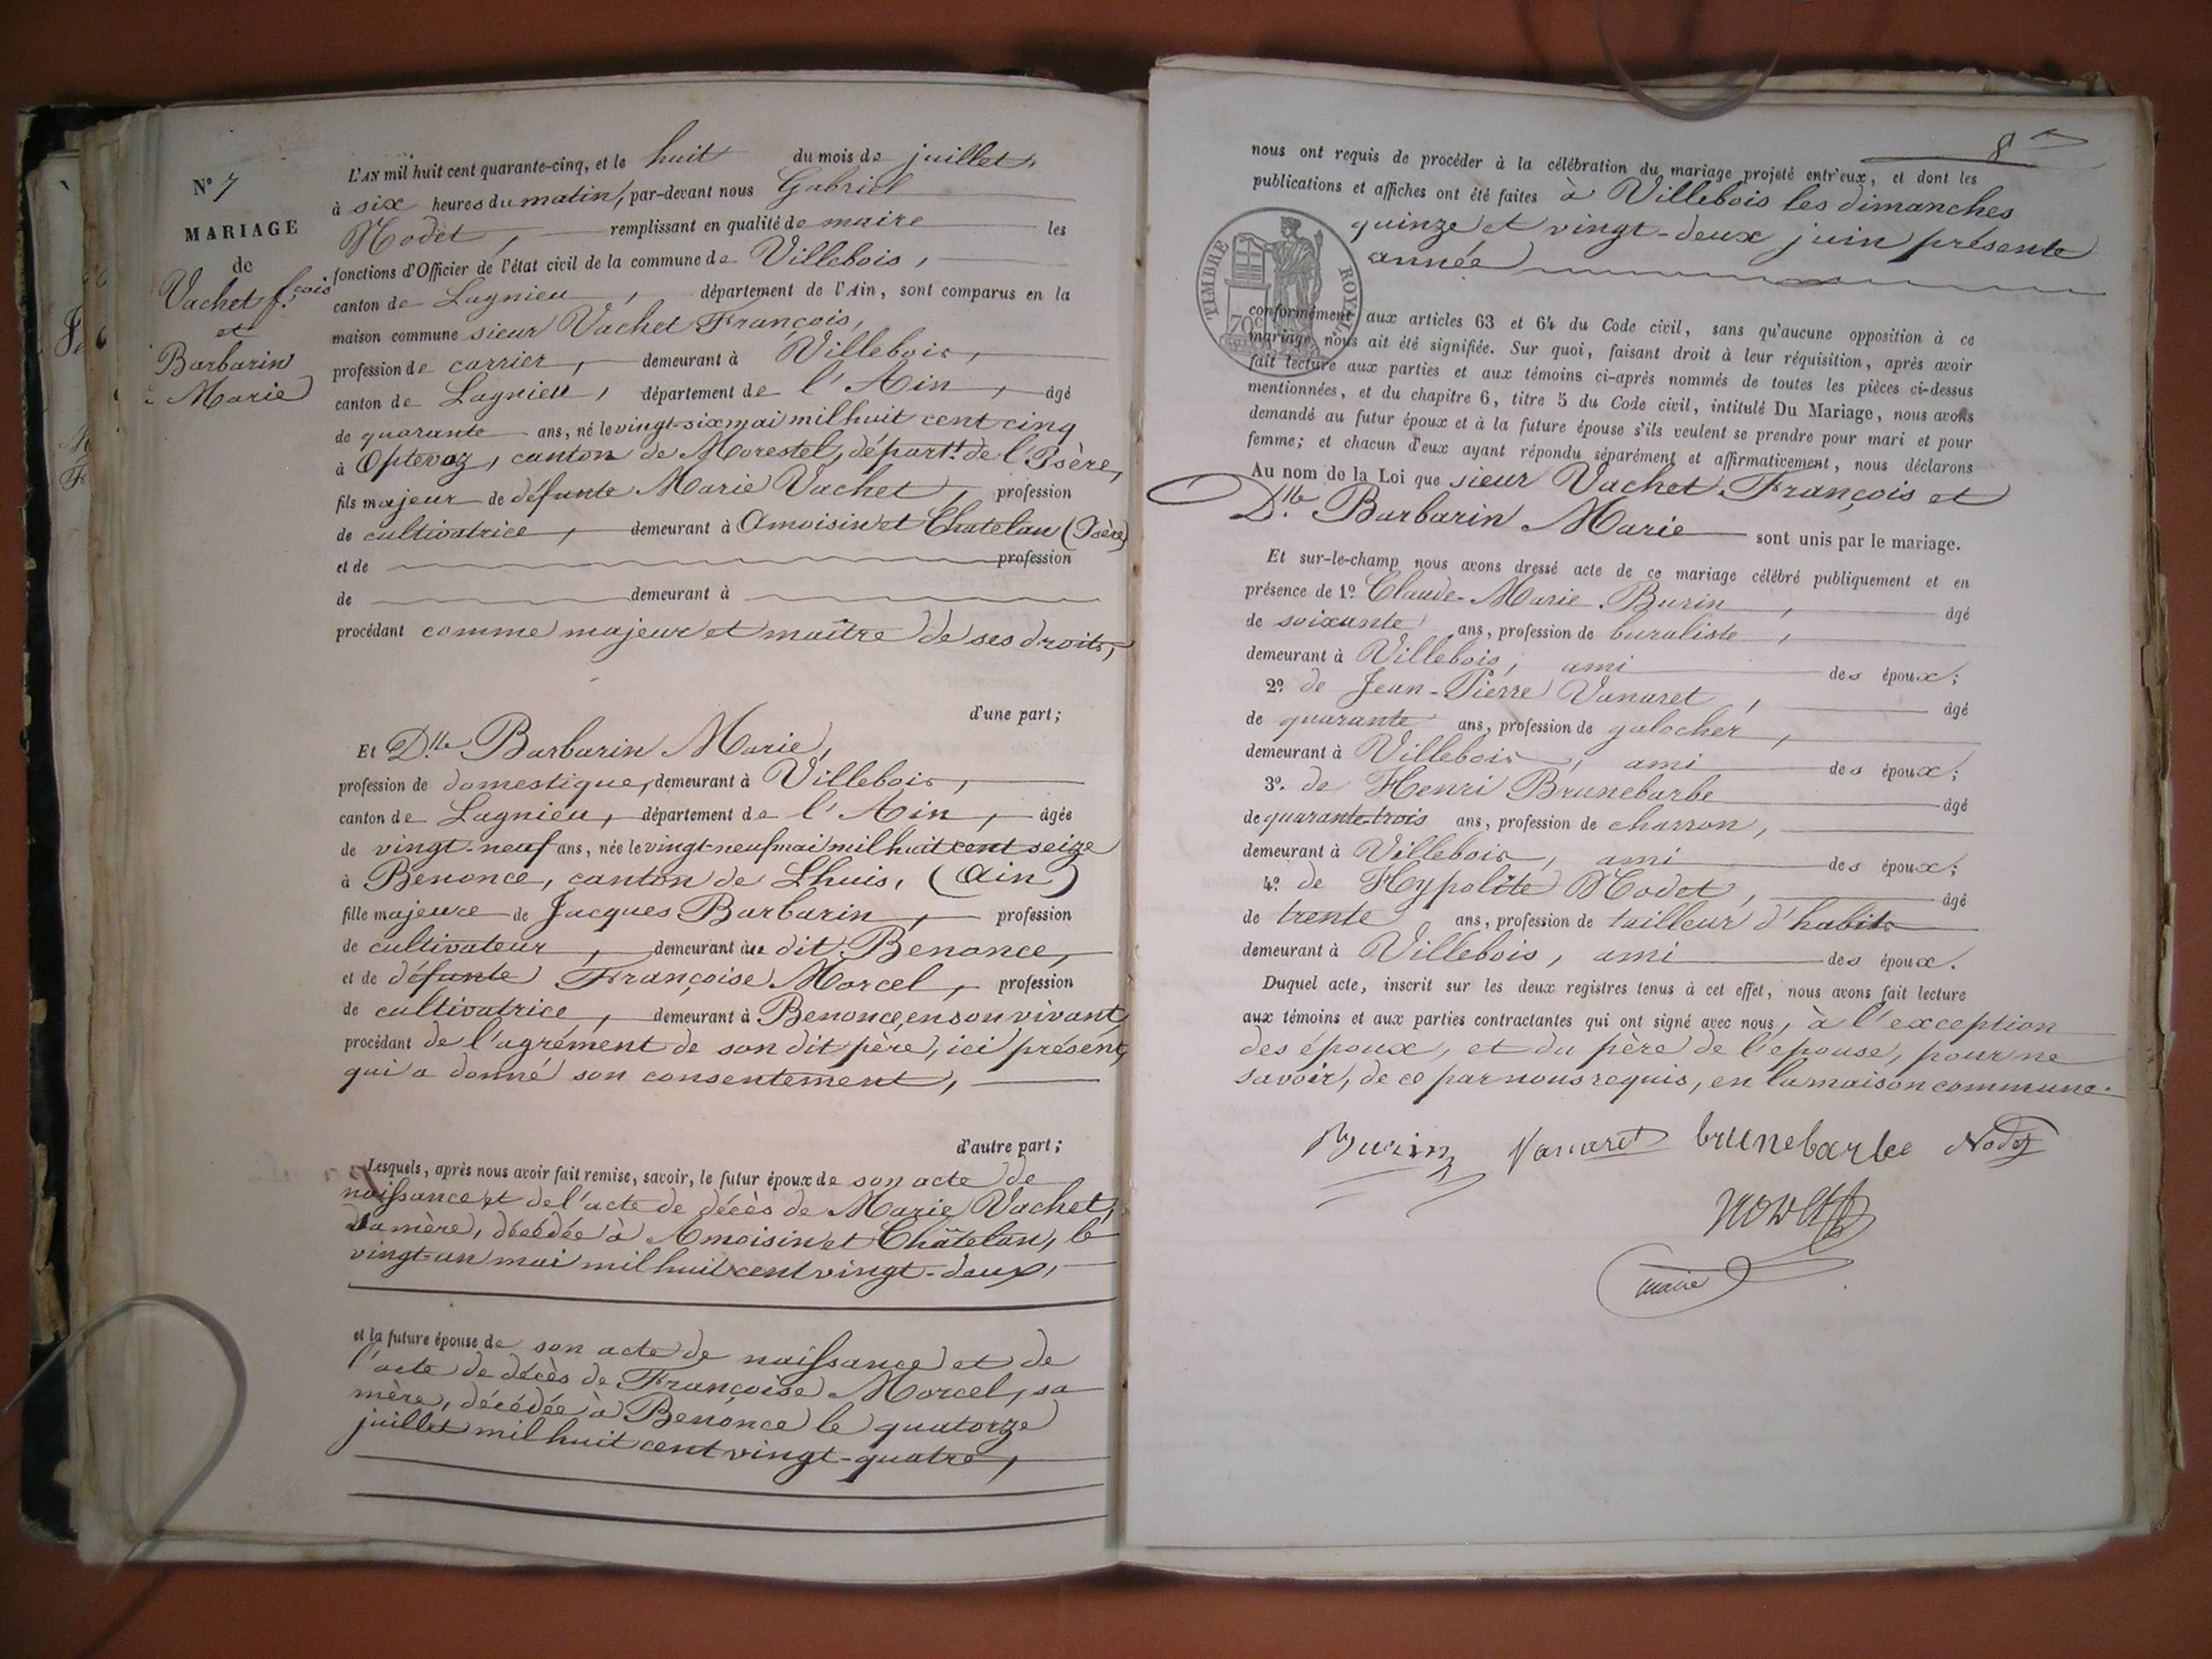 N° 7
MARIAGE
de
Vachet f.çois
et
Barbarin
Marie
L'AN mil huit cent quarante-cinq, et le huit du mois de juillet,
à six heures du matin, par-devant nous Gabriel
Nodet, remplissant en qualité de maire les
fonctions d'Officier de l'état civil de la commune de Villebois,
canton de Lagnieu, département de l'Ain, sont comparus en la
maison commune sieur Vachet François,
profession de carrier, demeurant à Villebois,
canton de Lagnieu, département de l'Ain, âgé
de quarante ans, né le vingt-six mai mil huit cent cinq
à Optevoz, canton de Morestel, départ.t de l'Isère,
fils majeur de défunte Marie Vachet, profession
de cultivatrice, demeurant à Amoisin et Chatelan (Isère)
et de profession
de demeurant à
procédant comme majeur et maître de ses droits,
d'une part;
Et D.lle Barbarin Marie,
profession de domestique, demeurant à Villebois,
canton de Lagnieu, département de l'Ain, âgée
de vingt-neuf ans, née le vingt-neuf mai mil huit cent seize
à Benonce, canton de Lhuis, (Ain)
fille majeure de Jacques Barbarin, profession
de cultivateur, demeurant au dit Benonce,
et de défunte Françoise Morcel, profession
de cultivatrice, demeurant à Benonce, en son vivant,
procédant de l'agrément de son dit père, ici présent,
qui a donné son consentement,
d'autre part;
Lesquels, après nous avoir fait remise, savoir, le futur époux de son acte de
naissance et de l'acte de décès de Marie Vachet,
sa mère, décédée à Amoisin et Châtelan, le
vingt-un mai mil huit cent vingt-deux,
et la future épouse de son acte de naissance et de
l'acte de décès de Françoise Morcel, sa
mère, décédée à Benonce le quatorze
juillet mil huit cent vingt-quatre,
8
nous ont requis de procéder à la célébration du mariage projeté entr'eux, et dont les
publications et affiches ont été faites à Villebois les dimanches
quinze et vingt-deux juin présente
année
TIMBRE ROYAL
70c
conformément aux articles 63 et 64 du Code civil, sans qu'aucune opposition à ce
mariage nous ait été signifiée. Sur quoi, faisant droit à leur réquisition, après avoir
fait lecture aux parties et aux témoins ci-après nommés de toutes les pièces ci-dessus
mentionnées, et du chapitre 6, titre 5 du Code civil, intitulé Du Mariage, nous avons
demandé au futur époux et à la future épouse s'ils veulent se prendre pour mari et pour
femme; et chacun d'eux ayant répondu séparément et affirmativement, nous déclarons
Au nom de la Loi que sieur Vachet François et
D.lle Barbarin Marie sont unis par le mariage.
Et sur-le-champ nous avons dressé acte de ce mariage célébré publiquement et en
présence de 1° Claude-Marie Burin, âgé
de soixante ans, profession de buraliste,
demeurant à Villebois, ami des époux;
2° de Jean-Pierre Vanaret, âgé
de quarante ans, profession de galocher,
demeurant à Villebois, ami des époux;
3° de Henri Brunebarbe âgé
de quarante-trois ans, profession de charron,
demeurant à Villebois, ami des époux;
4° de Hypolite Nodet, âgé
de trente ans, profession de tailleur d'habits
demeurant à Villebois, ami des époux.
Duquel acte, inscrit sur les deux registres tenus à cet effet, nous avons fait lecture
aux témoins et aux parties contractantes qui ont signé avec nous, à l'exception
des époux, et du père de l'épouse, pour ne
savoir, de ce par nous requis, en la maison commune.
Burin Vanaret brunebarbe Nodet
Nodet
maire